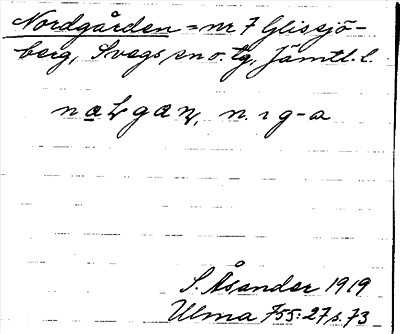 Nordgården = nr 7 Glissjö-
berg, Svegs sn o. tg, Jämtl. l.
n. i g-a
S. Åsander 1919
Ulma 755:27 s. 73